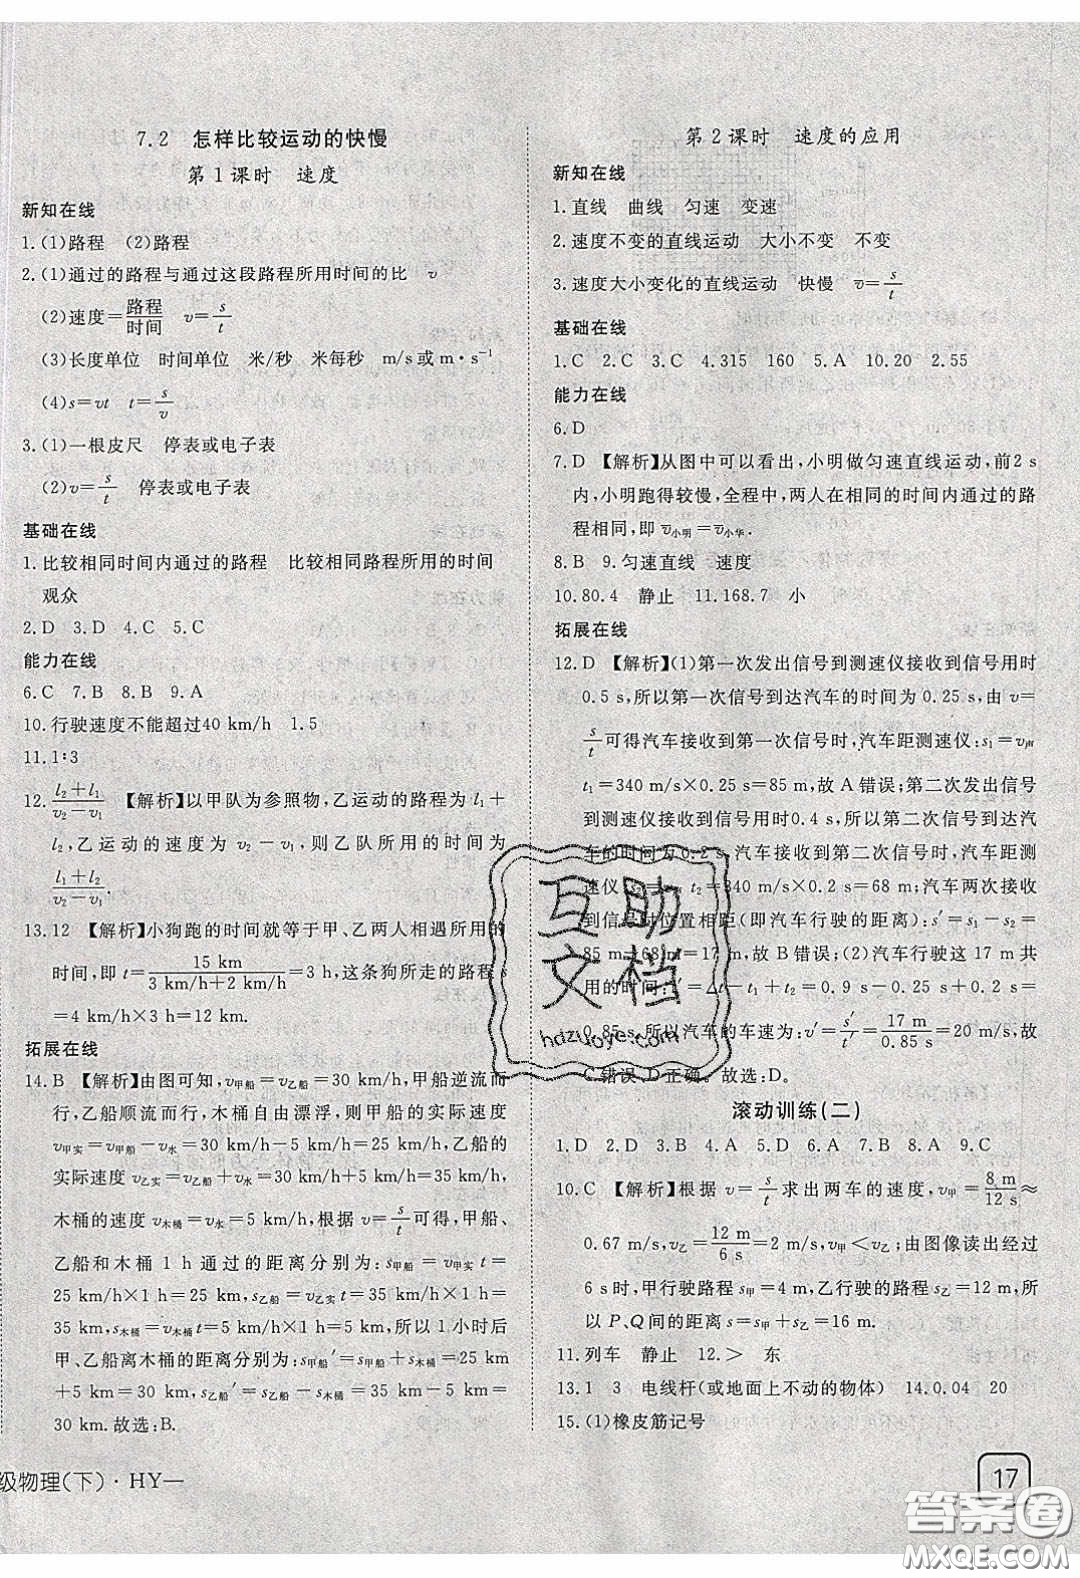 7.2 怎样比较运动的快慢
第1课时 速度
新知在线
1.(1)路程 (2)路程
2.(1)通过的路程与通过这段路程所用时间的比 v
(2)速度=路程/时间 v=s/t
(3)长度单位 时间单位 米/秒 米每秒 m/s或m·s⁻¹
(4)s=vt t=s/v
3.(1)一根皮尺 停表或电子表
(2)v=s/t 停表或电子表
基础在线
1.比较相同时间内通过的路程 比较相同路程所用的时间
观众
2.D 3.D 4.C 5.C
能力在线
6.C 7.B 8.B 9.A
10.行驶速度不能超过40 km/h 1.5
11.1∶3
12.(l₂+l₁)/(v₂−v₁) 【解析】以甲队为参照物,乙运动的路程为 l₁+
l₂,乙运动的速度为 v₂−v₁,则乙队所用的时间为
(l₁+l₂)/(v₂−v₁).
13.12 【解析】小狗跑的时间就等于甲、乙两人相遇所用的
时间,即 t=15 km/(3 km/h+2 km/h)=3 h,这条狗所走的路程 s
=4 km/h×3 h=12 km.
拓展在线
14.B 【解析】由图可知,v甲船=v乙船=30 km/h,甲船逆流而
行,乙船顺流而行,木桶自由漂浮,则甲船的实际速度
v甲实=v甲船−v水=30 km/h−5 km/h=25 km/h,乙船的
实际速度 v乙实=v乙船+v水=30 km/h+5 km/h=35 km/h,
木桶的速度 v木桶=v水=5 km/h,根据 v=s/t可得,甲船、
乙船和木桶 1 h 通过的距离分别为:s甲船=v甲实t=
25 km/h×1 h=25 km,s乙船=v乙实t=35 km/h×1 h=
35 km,s木桶=v木桶t=5 km/h×1 h=5 km,所以 1 小时后
甲、乙船离木桶的距离分别为:s甲船′=s甲船+s木桶=25 km
+5 km=30 km,s乙船′=s乙船−s木桶=35 km−5 km=
30 km.故选:B.
级物理(下)·HY—
第2课时 速度的应用
新知在线
1.直线 曲线 匀速 变速
2.速度不变的直线运动 大小不变 不变
3.速度大小变化的直线运动 快慢 v=s/t
基础在线
1.C 2.C 3.C 4.315 160 5.A 10.20 2.55
能力在线
6.D
7.D 【解析】从图中可以看出,小明做匀速直线运动,前2 s
内,小明跑得较慢,全程中,两人在相同的时间内通过的路
程相同,即 v小明=v小华.
8.B 9.匀速直线 速度
10.80.4 静止 11.168.7 小
拓展在线
12.D 【解析】(1)第一次发出信号到测速仪接收到信号用时
0.5 s,所以第一次信号到达汽车的时间为 0.25 s,由 v=
s/t可得汽车接收到第一次信号时,汽车距测速仪:s₁=v声
t₁=340 m/s×0.25 s=85 m,故 A 错误;第二次发出信号
到测速仪接收到信号用时0.4 s,所以第二次信号到达汽
车的时间为 0.2 s,汽车接收到第二次信号时,汽车距测
速仪 s₂=v声 t₂=340 m/s×0.2 s=68 m;汽车两次接收
到信号时位置相距(即汽车行驶的距离):s′=s₁−s₂=
85 m−68 m=17 m,故 B 错误;(2)汽车行驶这 17 m 共
用的时间:t′=Δt−t₁+t₂=0.9 s−0.25 s+0.2 s=
0.85 s,所以汽车的车速为:v′=s′/t′=17 m/0.85 s=20 m/s,故
C 错误,D 正确。故选:D。
滚动训练(二)
1.D 2.D 3.B 4.A 5.A 6.A 7.B 8.A 9.C
10.C 【解析】根据 v=s/t 求出两车的速度,v甲=8 m/12 s≈
0.67 m/s,v乙=12 m/6 s=2 m/s,v甲<v乙;由图像读出经过
6 s时,甲行驶路程 s甲=4 m,乙行驶路程 s乙=12 m,所
以P、Q间的距离 s=s甲+s乙=16 m.
11.列车 静止 12.> 东
13.1 3 电线杆(或地面上不动的物体) 14.0.04 20
15.(1)橡皮筋记号
17
互助
文档
hdzuoye.com
答案圈
MXQE.COM